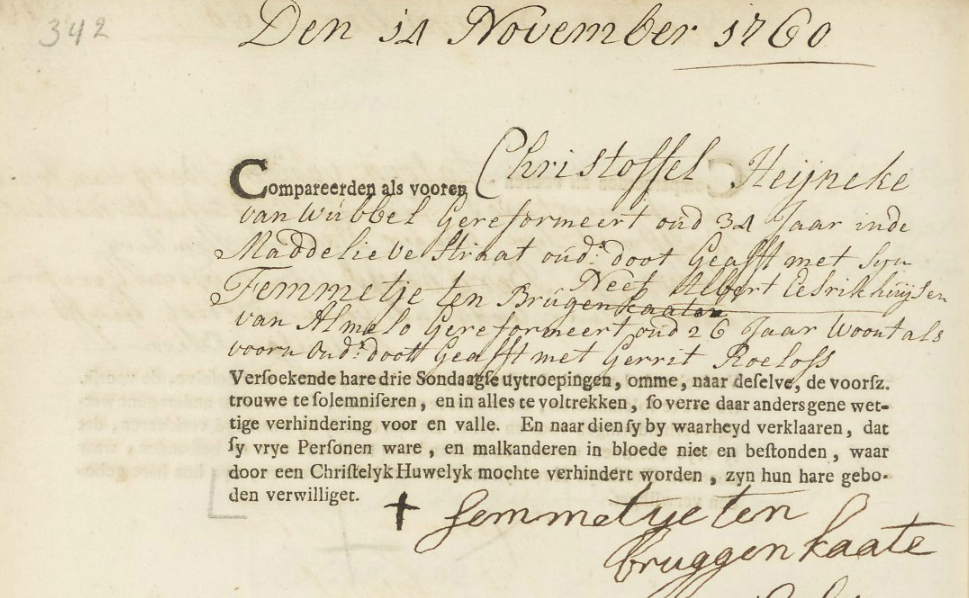 342
Den 14 November 1760
Compareerden als vooren Christoffel Heijneke
van Wübbel Gereformeert oud 34 Jaar inde
Maddelieve Straat oud:s doot Geafft met syn
Neef Albert Eesrikhuijsen
Femmetje ten Brügenkaaten
van Almelo Gereformeert oud 26 Jaar Woont als
voorn oud:s doott Geafft met Gerrit Roeloss
Versoekende hare drie Sondaagse uytroepingen, omme, naar deselve, de voorsz.
trouwe te solemniseren, en in alles te voltrekken, so verre daar anders gene wet-
tige verhindering voor en valle. En naar dien sy by waarheyd verklaaren, dat
sy vrye Personen ware, en malkanderen in bloede niet en bestonden, waar
door een Christelyk Huwelyk mochte verhindert worden, zyn hun hare gebo-
den verwilliget.
femmetye ten
bruggen kaate